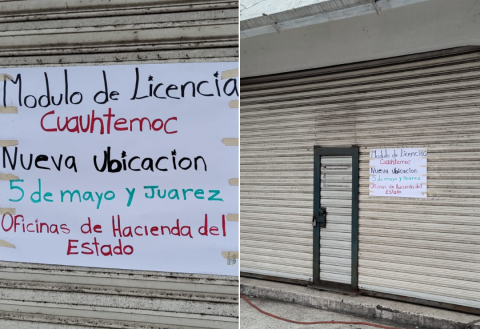 Modulo de Licencia
Cuauhtemoc
Nueva ubicacion
5 de mayo y Juarez
Oficinas de Hacienda del
Estado
Modulo de Licencia
Cuauhtemoc
Nueva ubicacion
5 de mayo y Juarez
Oficinas de Hacienda del
Estado